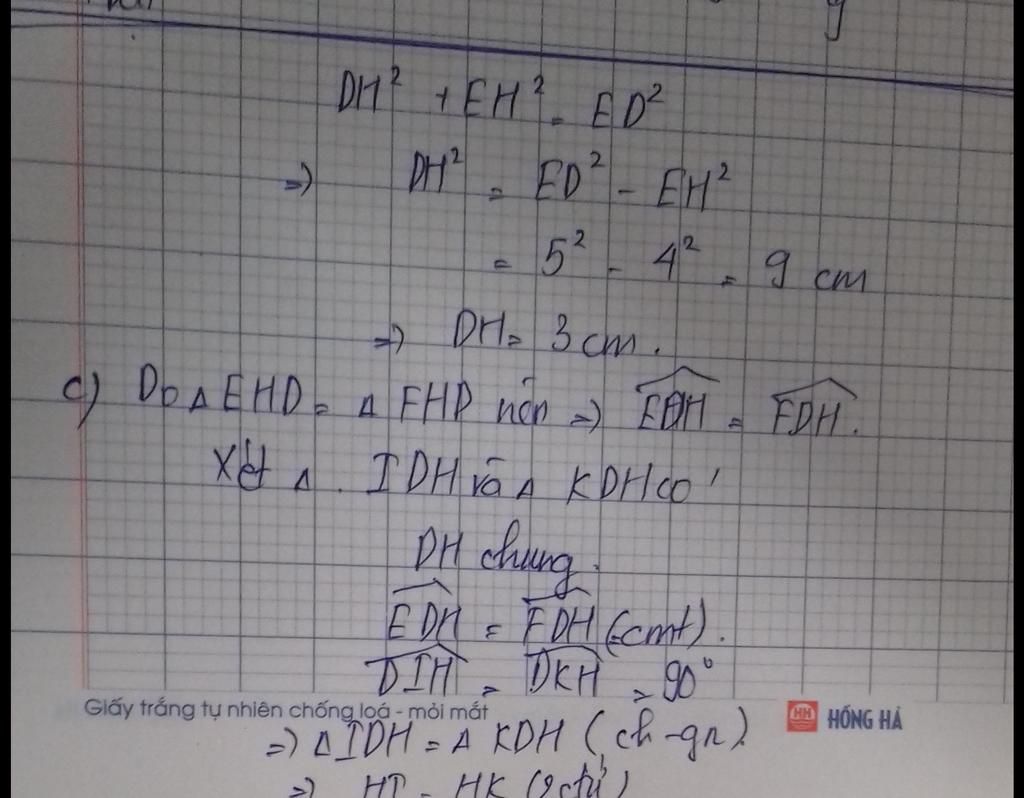 DH² + EH² = ED²
=> DH² = ED² - EH²
= 5² - 4² = 9 cm
=> DH = 3 cm.
c) Do Δ EHD = Δ FHD nên => \widehat{EDH} = \widehat{FDH}.
Xét Δ. IDH và Δ KDH có
DH chung.
\widehat{EDH} = \widehat{FDH} (cmt).
\widehat{DIH} = \widehat{DKH} = 90°
Giấy trắng tự nhiên chống loá - mỏi mắt
HH HỒNG HÀ
=> Δ IDH = Δ KDH (ch-gn).
=> HI = HK (2 ctứ)